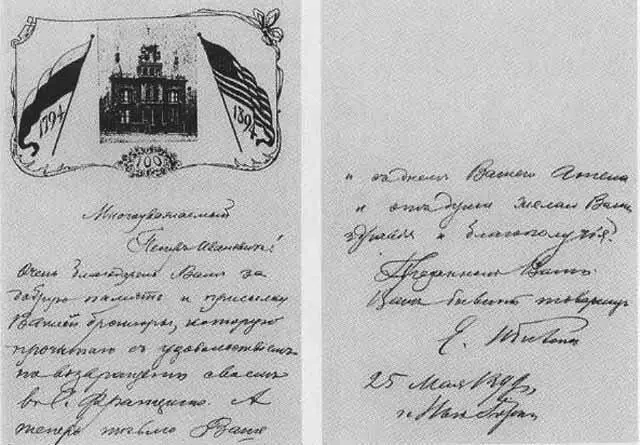 1794
1894
100
Многоуважаемый
Петръ Ивановичъ!
Очень благодаренъ Вамъ за
добрую память и присылку
Вашей брошюры, которую
прочитаю съ удовольствіемъ
по возвращеніи своемъ
въ С. Франциско. А
теперь только Ваше
и Вашего
и отъ души желаю Вамъ
здравія и благополучія.
Преданный Вамъ
Вашъ бывшій товарищъ
25 Мая